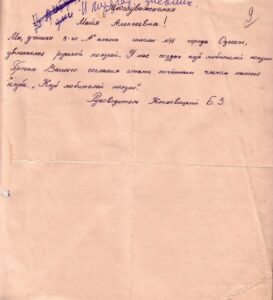 "И
9
Многоуважаемая
Майя Алексеевна!
Мы, ученики 8-го "А" класса школы №11 города Одессы,
увлекаемся русской поэзией. У нас создан клуб любителей поэзии
Просим Вашего согласия стать почётным членом нашего
клуба, "Клуб любителей поэзии".
Руководитель Б. З.